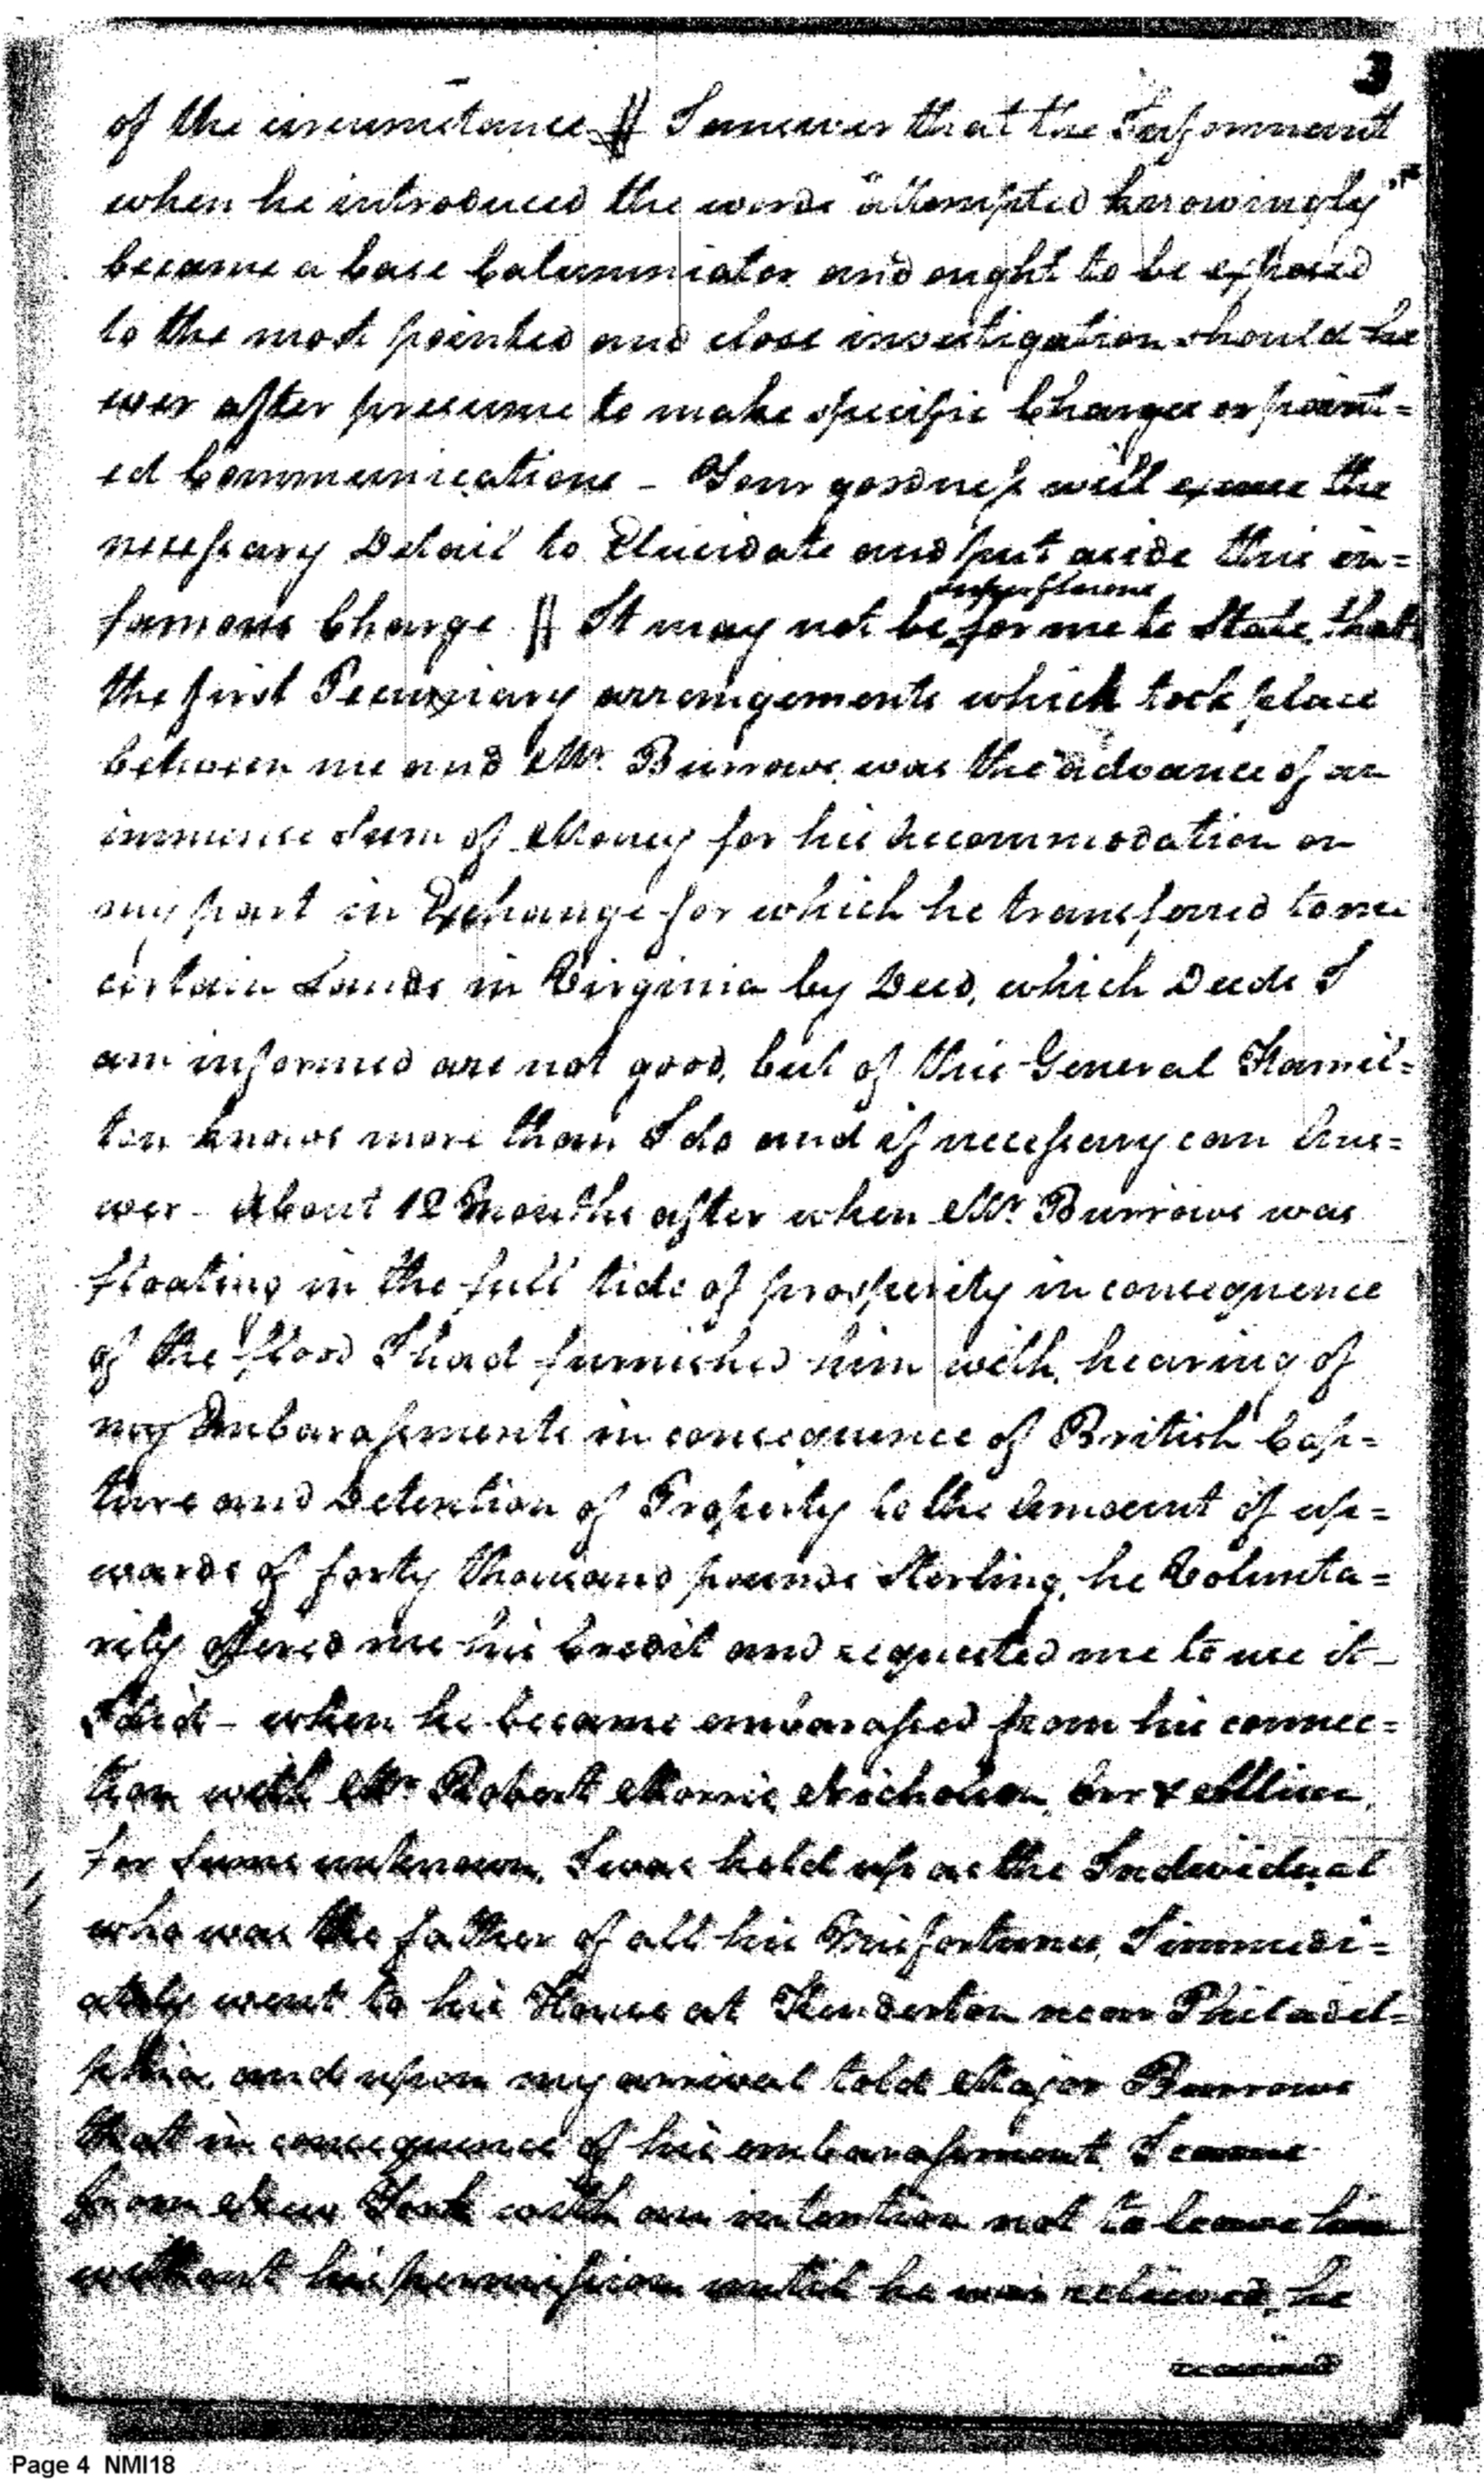 3
of the circumstance // I answer that the Informant
when he introduced the words "attempted knowingly"
became a base Calumniator and ought to be exposed
to the most pointed and close investigation should he
ever after presume to make specific Charges or point=
ed Communications - Your goodness will excuse the
necessary Detail to Elucidate and put aside this in=
superfluous
famous Charge // It may not be for me to State, that
the first Pecuniary arrangements which took place
between me and Mr. Burrows was the advance of an
immense Sum of Money for his Accommodation on
my part in Exchange for which he transferred to me
certain Lands in Virginia by Deed, which Deeds I
am informed are not good, but of this General Hamil=
ton knows more than I do and if necessary can Ans=
wer - About 12 Months after when Mr. Burrows was
floating in the full tide of prosperity in consequence
of the flood I had furnished him with, hearing of
my Embarassments in consequence of British Cap=
ture and Detention of Property to the Amount of up=
wards of forty thousand pounds Sterling, he Volunta=
rily offered me his Credit and requested me to use it -
I did - when he became embarassed from his connec=
tion with Mr. Robert Morris, Nicholson, &
for Sums unknown, I was held up as the Individual
who was the father of all his Misfortunes, I immedi=
ately went to his House at Kinderton near Philadel=
phia, and upon my arrival told Major Burrows
that in consequence of his embarassment I came
from New York with an intention not to leave him
without his permission until he was relieved, he